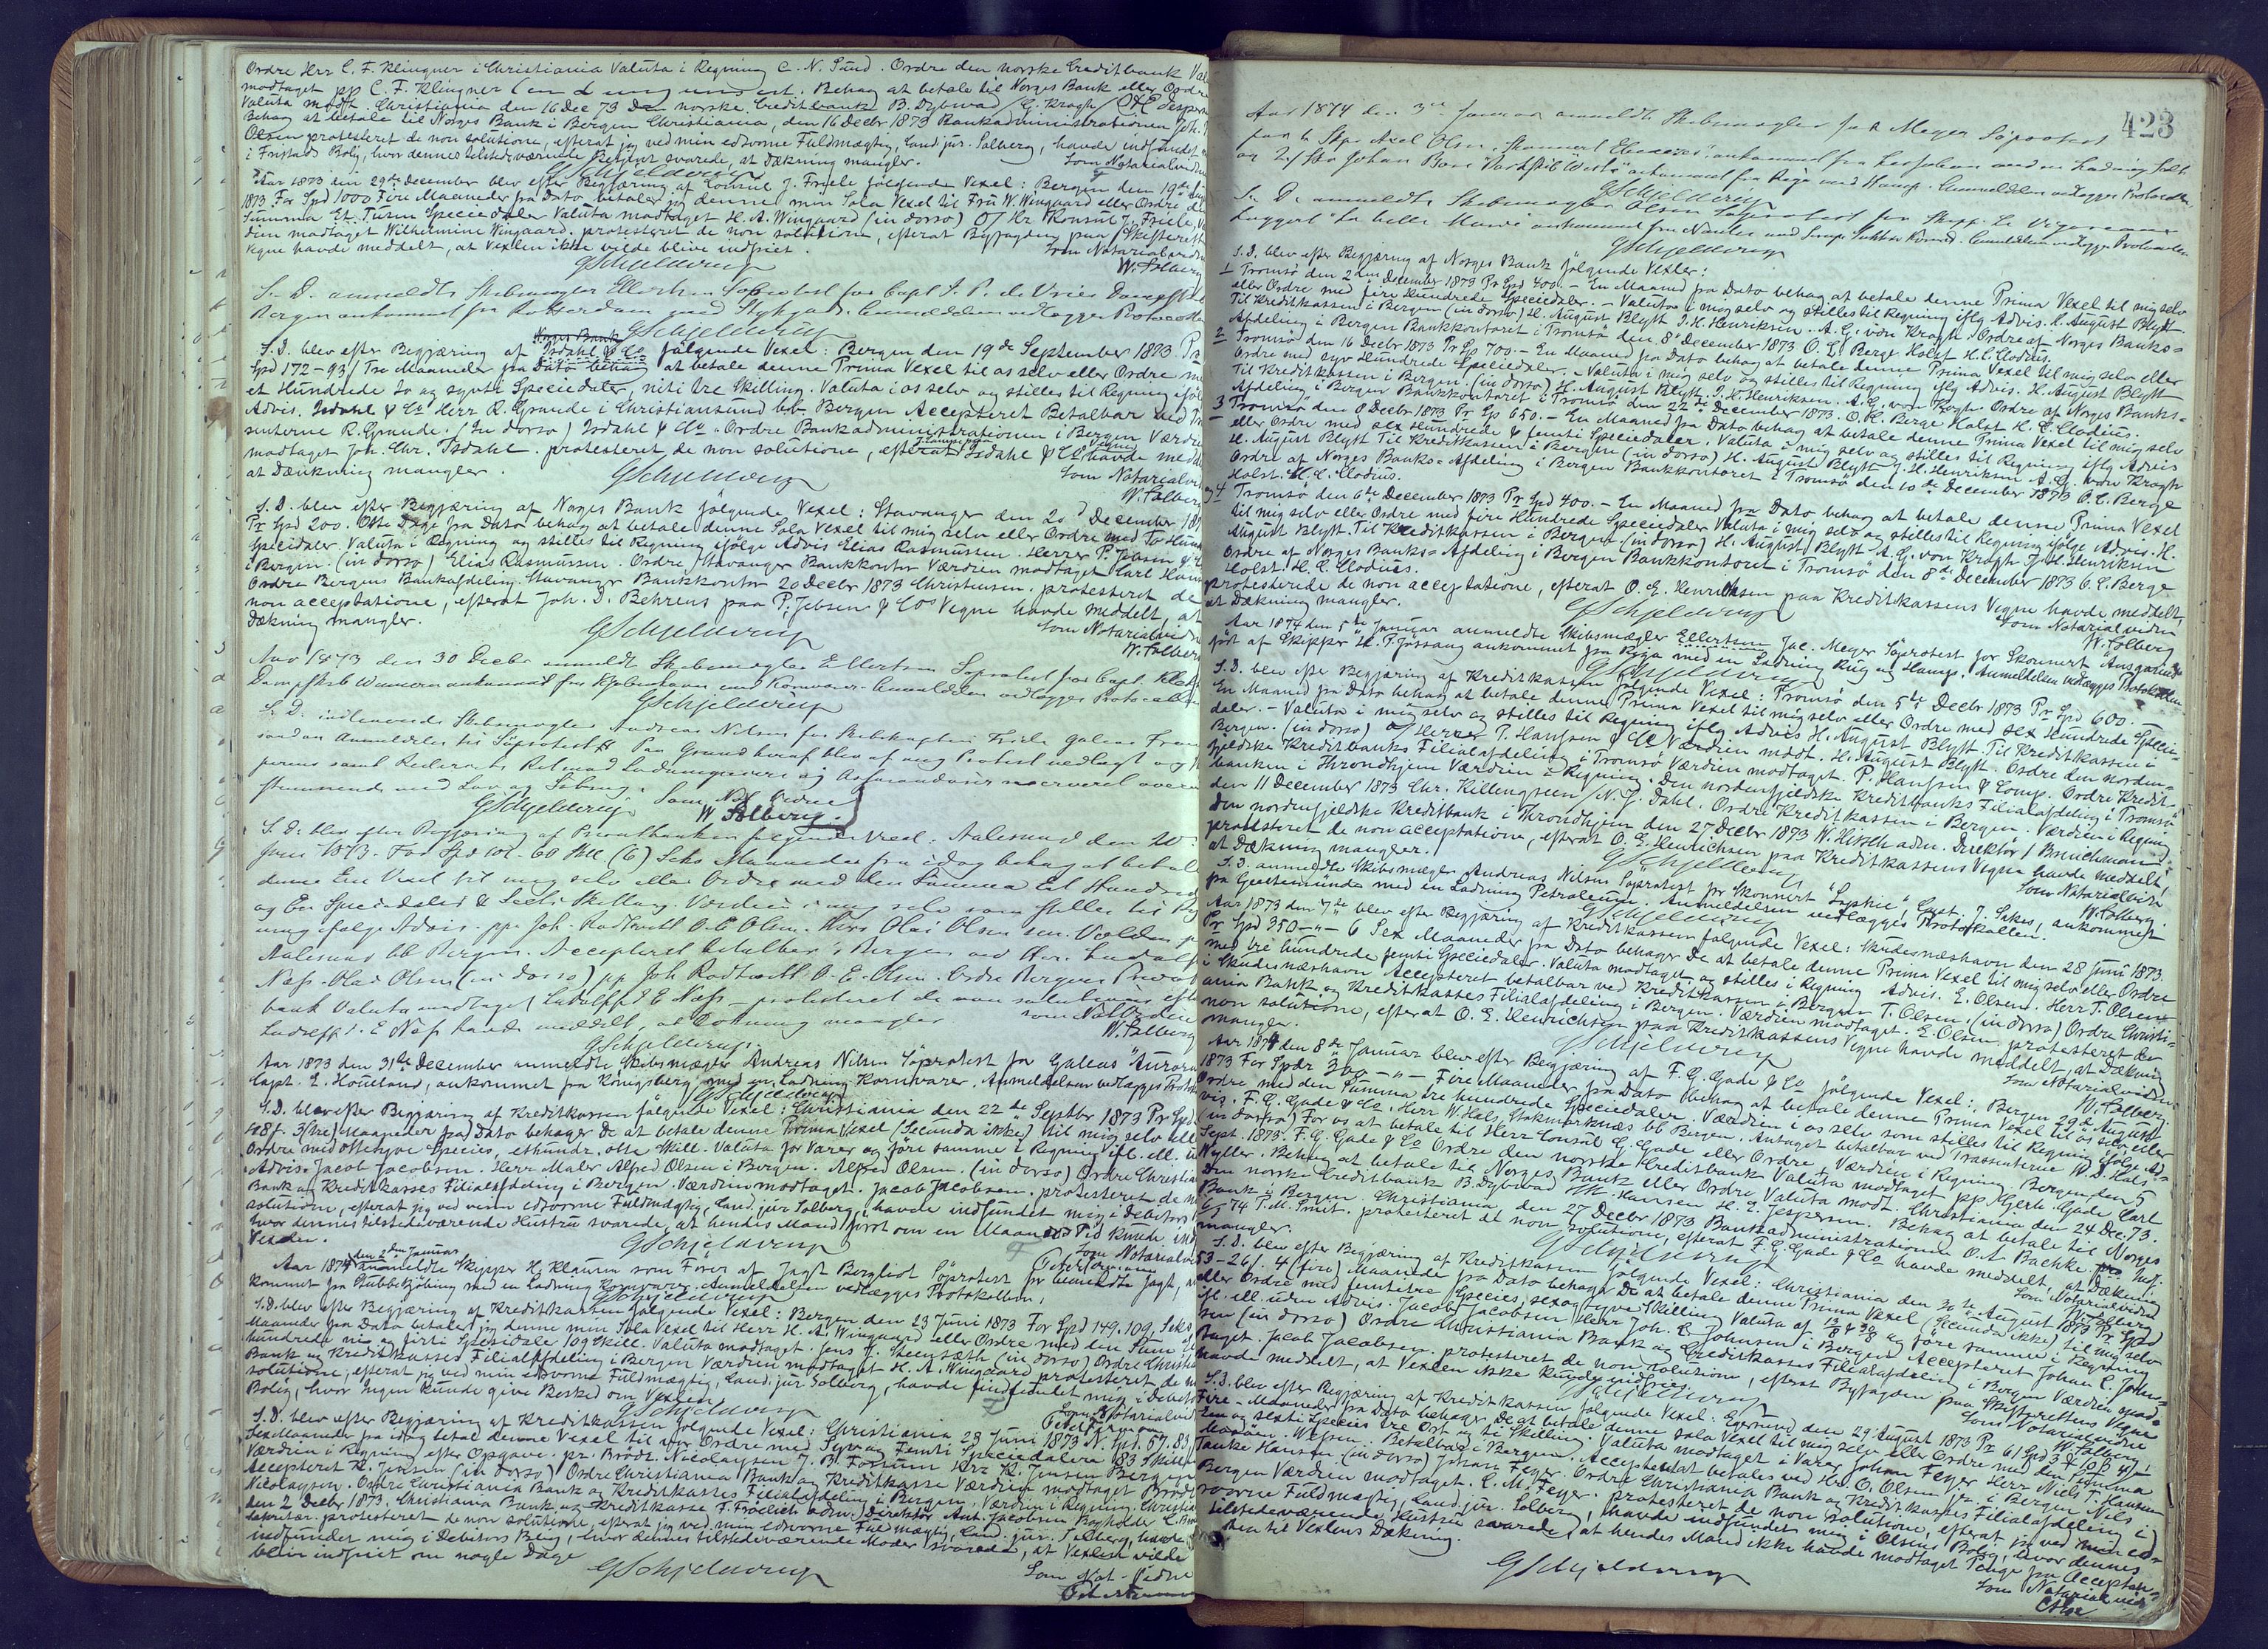 Ordre Herr C. F. Klingner i Christiania Valuta i Regning C. N. Sund. Ordre den norske Creditbank Val
modtaget pp C. F. Klingner Behag at betale til Norges Bank eller Ordre
Valuta modt. Christiania den 16 Dec 73 Den norske Creditbank B. Dybwad
Behag at betale til Norges Bank i Bergen Christiania, den 16 Decbr 1873 Bankadministrationen
Olsen protesteret de non solutione, efterat jeg ved min edsvorne Fuldmægtig, Cand. jur. Solberg, havde indfundet
i Bolig, hvor dennes tilstedeværende svarede, at Dækning mangler.
Som Notarialvidne
GSchjelderup
Aar 1873 den 29de December blev efter Begjæring af Konsul J. Friele følgende Vexel: Bergen den 19de
1873 For Spd 1000 Fire Maaneder fra Dato betaler jeg denne min Sola Vexel til Fru W. Wingaard eller Ordre
Summa Et Tusin Speciedaler Valuta modtaget H. A. Wingaard (in dorso) O/ Hr Konsul J. Friele, Vær
dien modtaget Wilhelmine Wingaard. protesteret de non solutione, efterat Byfogden paa Skifterett
Vegne havde meddelt, at Vexlen ikke vilde blive indfriet.
Som Notarialvidne
GSchjelderup
W. Solberg
S. D. anmeldte Skibsmægler Ellertsen Søprotest for Capt de Vries
Bergen ankommet fra Rotterdam med Stykgods. Anmeldelsen vedlægges Protocollen
GSchjelderup
Norges Bank
S. D. blev efter Begjæring af Isdahl & Co følgende Vexel: Bergen den 19de September 1873 Pr
Spd 172-93/ Tre Maaneder fra Dato behag at betale denne Prima Vexel til os selv eller Ordre m
et Hundrede to og syvti Speciedaler, niti tre Skilling. Valuta i os selv og stilles til Regning iføl
Advis. Isdahl & Co Herr R. Grande i Christiansund bb. Bergen Accepteret Betalbar ved Tr
senterne R. Grande. (In dorso) Isdahl & Co. Ordre Bankadministrationen i Bergen Værdie
modtaget Joh. Chr. Isdahl. protesteret de non solutione, efterat Isdahl & Co havde meddelt
at Dækning mangler.
Som Notarialvidne
GSchjelderup
W. Solberg
S. D. blev efter Begjæring af Norges Bank følgende Vexel: Stavanger den 20 December 187
Pr Spd 200. Otte Dage fra Dato behag at betale denne Sola Vexel til mig selv eller Ordre med To Hund
Speciedaler. Valuta i Regning og stilles til Regning ifølge Advis Elias Rasmussen. Herrer P. Jebsen & Co
i Bergen. (in dorso) Elias Rasmussen. Ordre Stavanger Bankkontor Værdien modtaget Carl
Ordre Bergens Bankafdeling. Stavanger Bankkontor 20 Decbr 1873 Christensen. protesteret de
non acceptatione, efterat Joh. D. Behrens paa P. Jebsen & Cos Vegne havde meddelt, at
Dækning mangler.
Som Notarialvidne
GSchjelderup
W. Solberg
Aar 1873 den 30 Decbr anmeldt Skibsmægler Ellertsen Søprotest for Capt.
Dampskib ankommet fra Kjøbenhavn med Kornvarer. Anmeldelsen vedlægges Protocollen
GSchjelderup
S. D. indleverede Skibsmægler Andreas Nilsen for
saadan Anmeldelse til Søprotest. Paa Grund heraf blev af mig Protest nedlagt og
stemmende med Lov og Sædvane.
GSchjelderup
Som Not. Vidne
W. Solberg
S. D. blev efter Begjæring af Privatbanken følgende Vexel. Aalesund den 20
Juni 1873. For Spd 101-60 Skill (6) Seks Maaneder fra idag behag at betal
denne Vexel til mig selv eller Ordre med den Summa Et Hundrede
og En Speciedaler & Seksti Skilling. Værdien i mig selv som stilles til Reg
ning ifølge Advis. pp. Joh. O. E. Olsen. Herr Olai Olsen
Aalesund bb Bergen. Accepteret betalbar i Bergen ved Hr. Ludolf
Næss. Olai Olsen (in dorso) pp Joh. O. E. Olsen. Ordre Bergens Privat
bank Valuta modtaget Ludolf J E Næss protesteret de non solutione efter
Ludolf J. E. Næss havde meddelt, at Dækning mangler
som Not Vidne
W. Solberg
GSchjelderup
Aar 1873 den 31te December anmeldte Skibsmægler Andreas Nilsen Søprotest for Galeas "Aurora
Capt. E. Houeland, ankommet fra Königsberg med en Ladning Kornvarer. Anmeldelsen vedlægges Protok
GSchjelderup
S. D. blev efter Begjæring af Kreditkassen følgende Vexel: Christiania den 22de Septbr 1873 Pr Spd.
3 (tre) Maaneder fra Dato behager De at betale denne Prima Vexel (Secunda ikke) til mig selv elle
Ordre med Species, otte Skill. Valuta for Varer og føre samme i Regning
Advis. Jacob Jacobsen. Herr Maler Alfred Olsen i Bergen. Alfred Olsen. (in dorso) Ordre Christiania
Bank og Kreditkasses Filialafdeling i Bergen. Værdien modtaget. Jacob Jacobsen. protesteret de non
solutione, efterat jeg ved min edsvorne Fuldmægtig, Cand. jur Solberg, havde indfundet mig i Debitors
hvor dennes tilstedeværende Hustru svarede, at hendes Mand først om en Maaneds Tid kunde ind
Vexelen.
GSchjelderup
Som Notarialvidne
Aar 1874 den 2den Januar anmeldte Skipper H. Klauum som Fører af Jagt Bergliot Søprotest for bemeldte Jagt, an
kommet fra Stubbekjøbing med en Ladning Kornvarer. Anmeldelsen vedlægges Protokollen.
GSchjelderup
S. D. blev efter Begjæring af Kreditkassen følgende Vexel: Bergen den 23 Juni 1873 For Spd 149.109. Seks
Maaneder fra Dato betaler jeg denne min Sola Vexel til Herr H. A. Wingaard eller Ordre med den Sum
hundrede ni og firti Speciedaler 109 Skill. Valuta modtaget. Jens H. Steensæth (in dorso) Ordre Christia
Bank og Kreditkasses Filialafdeling i Bergen Værdien modtaget H. A. Wingaard protesteret de non
solutione, efterat jeg ved min edsvorne Fuldmægtig, Cand. jur Solberg, havde indfundet mig i Debitors
Bolig, hvor Ingen kunde give Besked om Vexlen.
GSchjelderup
Som Notarialvidne
S. D. blev efter Begjæring af Kreditkassen følgende Vexel: Christiania 23 Juni 1873 N. Spd. 57.83
Sex Maaneder fra idag betal denne Vexel til vor Ordre med Syv og Femti Speciedaler 83 Skilling
Værdien i Regning efter Opgave. pr. Brødr. Nicolaysen J. B. Fossum Hrr K. Jensen Bergen
Accepteret K. Jensen (in dorso) Ordre Christiania Bank og Kreditkasse Værdien modtaget Brødr
Nicolaysen. Ordre Christiania Bank og Kreditkasses Filialafdeling i Bergen. Værdien i Regning. Christia
den 2 Decbr 1873. Christiania Bank og Kreditkasse F. Frölich adm. Direktør Ant. Jacobsen Bogholder
protesteret de non solutione, efterat jeg ved min edsvorne Fuldmægtig, Cand. jur. Solberg, havde
indfundet mig i Debitors Bolig, hvor dennes tilstedeværende Moder svarede, at Vexlen vilde
blive indfriet om nogle Dage
GSchjelderup
Som Not. Vidne
423
Aar 1874 den 3die Januar anmeldte Skibsmægler Jac Meyer Søprotest
for 1 Skpr Axel Olsen, Skonnert Ebenezer, ankommet fra med en Ladning Salt
og 2/ Johan ankommet fra Riga med Hamp. Anmeldelsen vedlægges Protocollen.
GSchjelderup
S. D. anmeldte Skibsmægler Olsen Søprotest for Skpr. Le
Luggert La belle Marie ankommet fra Nantes med Anmeldelsen vedlægges Protocollen
GSchjelderup
S. D. blev efter Begjæring af Norges Bank følgende Vexler:
1 Tromsø den 2den December 1873 Pr Spd 400.- En Maaned fra Dato behag at betale denne Prima Vexel til mig selv
eller Ordre med fire Hundrede Speciedaler.- Valuta i mig selv og stilles til Regning iflg Advis. H. August Blytt
Til Kreditkassen i Bergen (in dorso) H. August Blytt J. H. Henriksen. A. G. von Krogh. Ordre af Norges Banks=
Afdeling i Bergen Bankkontoret i Tromsø den 8de December 1873 O. L. Berge Holst H. C. Clodius.
2 Tromsø den 16 Decbr 1873 Pr Sp 700.- En Maaned fra Dato behag at betale denne Prima Vexel til mig selv eller
Ordre med syv Hundrede Speciedaler.- Valuta i mig selv og stilles til Regning iflg Advis. H. August Blytt
Til Kreditkassen i Bergen. (in dorso) H. August Blytt. J. H. Henriksen. A. G. von Krogh. Ordre af Norges Banks-
Afdeling i Bergen Bankkontoret i Tromsø den 22de December 1873. O. L. Berge Holst H. C. Clodius.
3 Tromsø den 8 Decbr 1873 Pr Sp 650.- En Maaned fra Dato behag at betale denne Prima Vexel til mig selv
eller Ordre med sex Hundrede & femti Speciedaler. Valuta i mig selv og stilles til Regning iflg Advis
H. August Blytt Til Kreditkassen i Bergen (in dorso) H. August Blytt J. H. Henriksen A. G. von Krogh
Ordre af Norges Banks=Afdeling i Bergen Bankkontoret i Tromsø den 10de December 1873 O. L. Berge
Holst. H. C. Clodius.
og 4 Tromsø den 6te December 1873 Pr Spd 400.- En Maaned fra Dato behag at betale denne Prima Vexel
til mig selv eller Ordre med fire Hundrede Speciedaler Valuta i mig selv og stilles til Regning ifølge Advis. H.
August Blytt. Til Kreditkassen i Bergen (in dorso) H. August Blytt A. G. von Krogh J. H. Henriksen
Ordre af Norges Banks=Afdeling i Bergen Bankkontoret i Tromsø den 8de December 1873 O. L. Berge
Holst H. C. Clodius.
protesterede de non acceptatione, efterat O. E. Henrichsen paa Kreditkassens Vegne havde meddelt,
at Dækning mangler.
Som Notarialvidne
GSchjelderup
W. Solberg
Aar 1874 den 5te Januar anmeldte Skibsmægler Ellertsen Jac. Meyer Søprotest for Skonnert "Ansgarius"
ført af Skipper H. F. Jössang ankommet fra Riga med en Ladning Rug og Hamp. Anmeldelsen vedlægges Protokollen
GSchjelderup
S. D. blev efter Begjæring af Kreditkassen følgende Vexel: Tromsø den 5te Decbr 1873 Pr Spd 600.-
En Maaned fra Dato behag at betale denne Prima Vexel til mig selv eller Ordre med sex Hundrede Specie-
daler.- Valuta i mig selv og stilles til Regning iflg. Advis H. August Blytt. Til Kreditkassen i
Bergen. (in dorso) O/ Herrer P. Hanssen & Co Værdien modt. H. August Blytt. Ordre den norden-
fjeldske Kreditbanks Filialafdeling i Tromsø Værdien modtaget. P. Hanssen & Comp. Ordre Kredit-
banken i Throndhjem Værdien i Regning. Den nordenfjeldske Kreditbanks Filialafdeling i Tromsø
den 11 December 1873 Chr. Killengreen / N. J. Dahl. Ordre Kreditkassen i Bergen. Værdien i Regning
Den nordenfjeldske Kreditbank i Throndhjem den 27 Decbr 1873 W. Hiroth adm. Direktør /
protesteret de non acceptatione, efterat O. E. Henrichsen paa Kreditkassens Vegne havde meddelt,
at Dækning mangler.
Som Notarialvidne
GSchjelderup
W. Solberg
S. D. anmeldte Skibsmægler Andreas Nilsen Søprotest for Skonnert "Sophie", Capt. J. Sakes, ankommet
fra Geestemünde med en Ladning Petroleum. Anmeldelsen vedlægges Protokollen.
GSchjelderup
Aar 1873 den 7de blev efter Begjæring af Kreditkassen følgende Vexel: Skudesnæshavn den 28 Juni 1873.
Pr Spd 350-"- 6 Sex Maaneder fra Dato behager De at betale denne Prima Vexel til mig selv eller Ordre
med tre hundrede femti Speciedaler. Valuta modtaget og stilles i Regning Advis. E. Olsen. Herr T. Olsen
i Skudesnæshavn Accepteret betalbar ved Kreditkassen i Bergen T. Olsen. (in dorso) Ordre Christi-
ania Bank og Kreditkasses Filialafdeling i Bergen. Værdien modtaget. E. Olsen. protesteret de
non solutione, efterat O. E. Henrichsen paa Kreditkassens Vegne havde meddelt, at Dækning
mangler.
Som Notarialvidne
GSchjelderup
W. Solberg
Aar 1874 den 8de Januar blev efter Begjæring af F. G. Gade & Co følgende Vexel: Bergen 29de August
1873 For Spdr 300-"- Fire Maaneder fra Dato behag at betale denne Prima Vexel til os selv eller
Ordre med den Summa tre hundrede Speciedaler. Værdien i os selv som stilles til Regning ifølge Ad-
vis. F. G. Gade & Co. Herr W. Hals, Stokmarknæs bb Bergen. Antaget betalbar ved Trassenterne W. D. Hals
(in dorso) For os at betale til Herr Consul G. Gade eller Ordre Værdien i Regning. Bergen den 5
Sept. 1873. F. G. Gade & Co Ordre den norske Creditbank Valuta modtaget pp. Gerh. Gade Carl
Myller. Behag at betale til Norges Bank eller Ordre Valuta modt. Christiania den 24 Dec. 73.
Den norske Creditbank B. Dybwad Hansen H. E. Jespersen. Behag at betale til Norges
Bank i Bergen. Christiania den 27 Decbr 1873 Bankadministrationen O. A Bachke.
74 T. M. Smit. protesteret de non solutione, efterat F. G. Gade & Co havde meddelt, at Dækning
mangler.
Som Notarialvidne
GSchjelderup
W. Solberg
S. D. blev efter Begjæring af Kreditkassen følgende Vexel: Christiania den 30te August 1873 Pr. Spd
53-26/. 4 (fire) Maaneder fra Dato behager De at betale denne Prima Vexel (Secunda ikke) til mig selv
eller Ordre med femtitre Species, sex og tyve Skilling Valuta af og føre samme i Regning
uden Advis. Jacob Jacobsen Herr Joh. C. Johnsen i Bergen Accepteret Johan C. John-
sen (in dorso) Ordre Christiania Bank og Kreditkasses Filialafdeling i Bergen Værdien mod-
taget. Jacob Jacobsen. protesteret de non solutione, efterat Byfogden paa Skifterettens Vegne
havde meddelt, at Vexlen ikke kunde indfries.
Som Notarialvidne
GSchjelderup
W. Solberg
S. D. blev efter Begjæring af Kreditkassen følgende Vexel: Egersund den 29 August 1873 Pr 61 Spd 3
Fire - Maaneder fra Dato behager De at betale denne sola Vexel til mig selv eller Ordre med den Summa
En og sexti Species tre Ort og ti Skilling. Valuta modtaget i Varer Johan Feyer Herr Niels T. Hansen
Betalbar i Bergen. Accepteret at betales ved Hr. O. Olsen jr. i Bergen Nils
Tanke Hansen (in dorso) Johan Feyer. Ordre Christiania Bank og Kreditkasses Filialafdeling i
Bergen Værdien modtaget. C. M. Feyer. protesteret de non solutione, efterat jeg ved min ed-
svorne Fuldmægtig, Cand. jur. Solberg, havde indfundet mig i Olsens Bolig, hvor dennes
tilstedeværende Hustru svarede, at hendes Mand ikke havde modtaget Penge fra Acceptan-
ten til Vexlens Dækning.
Som Notarialvidne
GSchjelderup